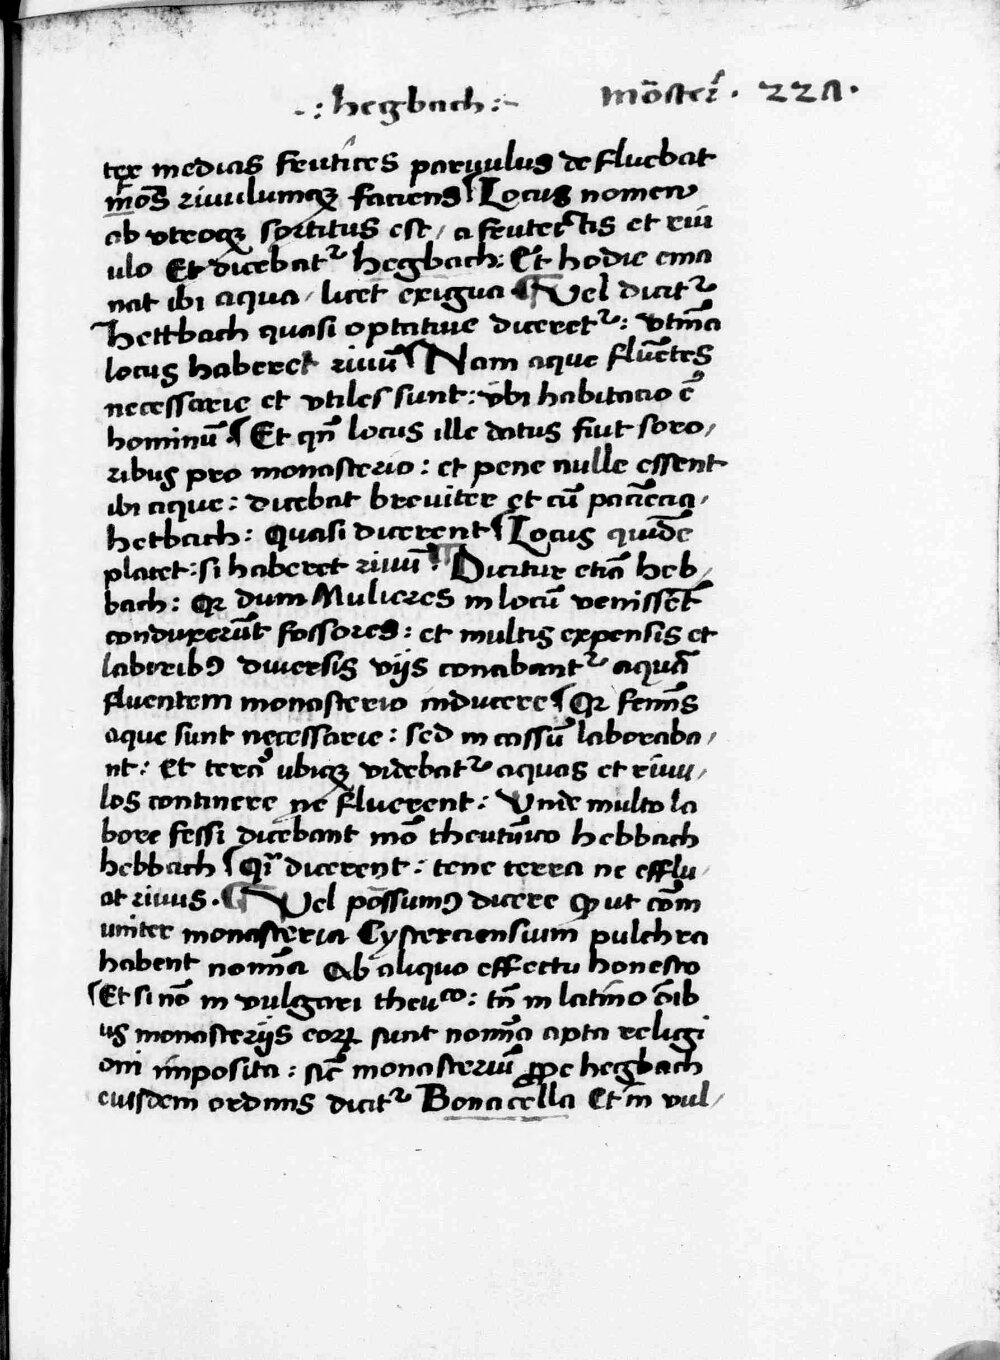 -:hegbach:- mōster̄. 221.
ter medias feutices paruulus defluebat
mōs riuulumqʒ faciens Locus nomen
ab vtroqʒ sortitus est, a feutectis et riu
ulo Et dicebatᷣ hegbach: Et hodie ema
nat ibi aqua, licet exigua ¶ Vel dicitᷣ
hettbach quasi optatiue diceretᷣ: vtinā
locus haberet riuū Nam aque fluētes
necessarie et vtiles sunt: vbi habitacio ē
hominū. Et qn̄ locus ille datus fiut soro,
ribus pro monasterio: et pene nulle essent
ibi aque: dicebat breuiter et cū paciēcia,
hetbach: Quasi dicerent Locus quidē
placet: si haberet riuū. ¶ Dicitur etiā heb,
bach: Qꝛ dum Mulieres in locū venissēt
conduxerūt fossores: et multis expensis et
laboribꝰ diuersis vijs conabantᷣ aquā
fluentem monasterio inducere Qꝛ femīs
aque sunt necessarie: sed in cassū laboraba,
nt: Et terā ubiqʒ videbatᷣ aquas et riuu,
los continere ne fluerent: Vnde multo la
bore fessi dicebant mō theutūico hebbach
hebbach Qꝛ dicerent: tene terra ne efflu,
at riuus. ¶ Vel possumꝰ dicere ꝙ ut cōm
uniter monasteria Cysterciensium pulchra
habent nomīa Ab aliquo effectu honesto
Et si nō in vulgari theuᶜᵒ: tn̄ in latino oīb
us monasterijs eoꝝ sunt nomīa apta religi
oni imposita: sic̄ monasteriū ꝓpe hegbach
eiusdem ordinis dicitᷣ Bona cella Et in vul,